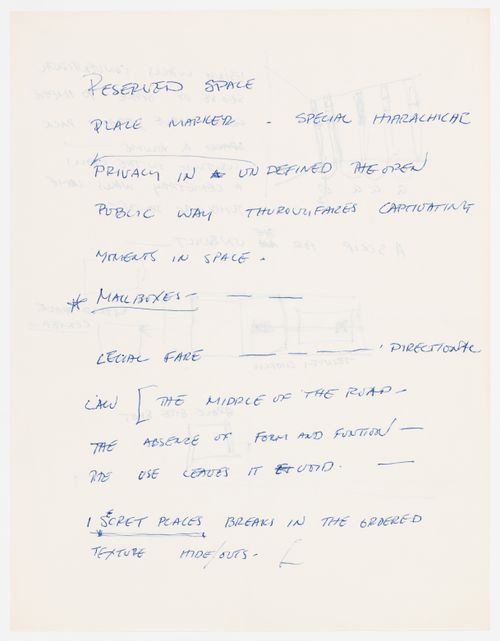 RESERVED SPACE
PLACE MARKER - SPECIAL HIARACHICAL
PRIVACY IN A UNDEFINED THE OPEN
PUBLIC WAY THUROUGFARES CAPTIVATING
MOMENTS IN SPACE.
* MAILBOXES - — —
LEGAL FARE — — — DIRECTIONAL
LAW [ THE MIDDLE OF THE ROAD -
THE ABSENCE OF FORM AND FUNTION —
THE USE LEAVES IT VOID. —
1 SECRET PLACES BREAKS IN THE ORDERED
TEXTURE HIDE/OUTS - [